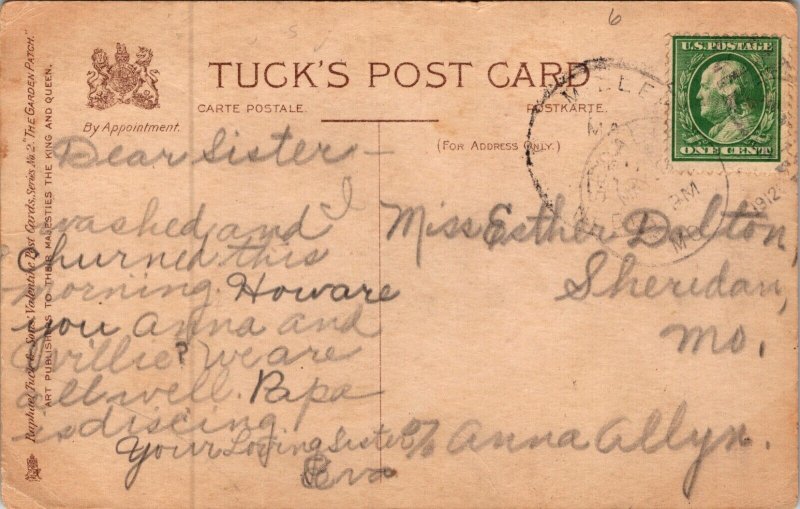 6
TUCK'S POST CARD
CARTE POSTALE.
POSTKARTE.
By Appointment.
(FOR ADDRESS ONLY.)
U.S. POSTAGE
ONE CENT
1912
MO
Raphael Tuck & Sons' Valentine Post Cards, Series No. 2. "THE GARDEN PATCH."
ART PUBLISHERS TO THEIR MAJESTIES THE KING AND QUEEN.
Dear Sister—
I
washed and
Churned this
morning. How are
you Anna and
Willie? We are
all well. Papa
is discing.
Your Loving Sister
Eva
Miss Esther Dalton,
Sheridan,
Mo.
c/o Anna Allyn.